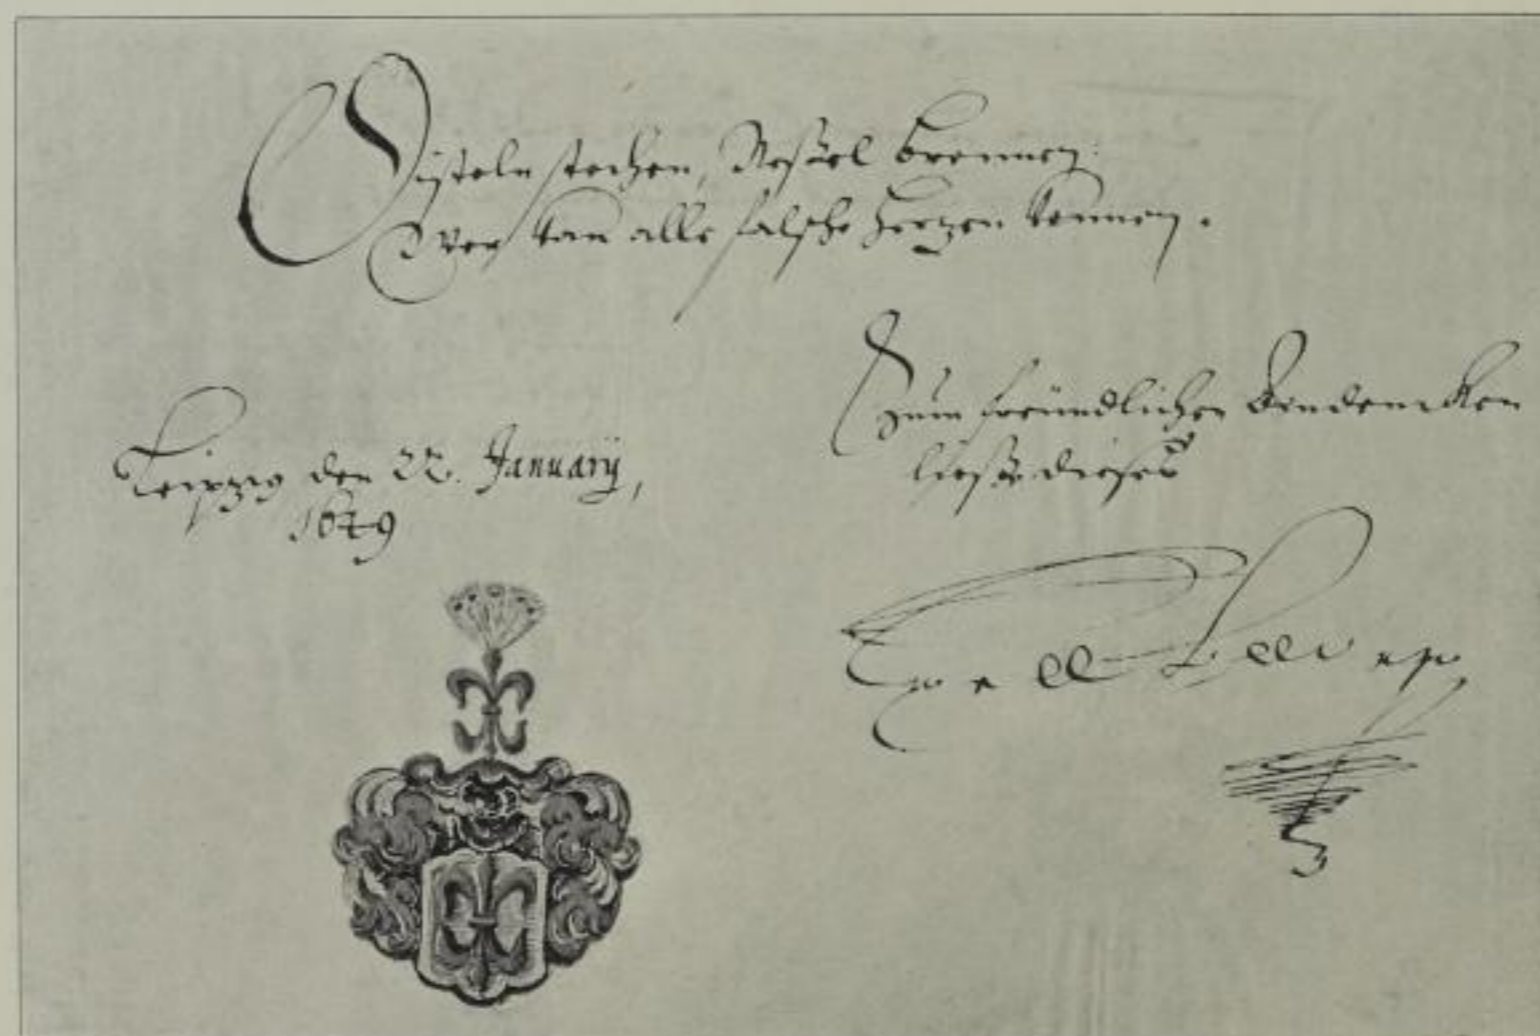 Disteln stechen, Neßel brennen:
Wer kan alle falsche hertzen kennen.
Zum freündlichen
ließ dieses
Leipzig den 22. January,
1649